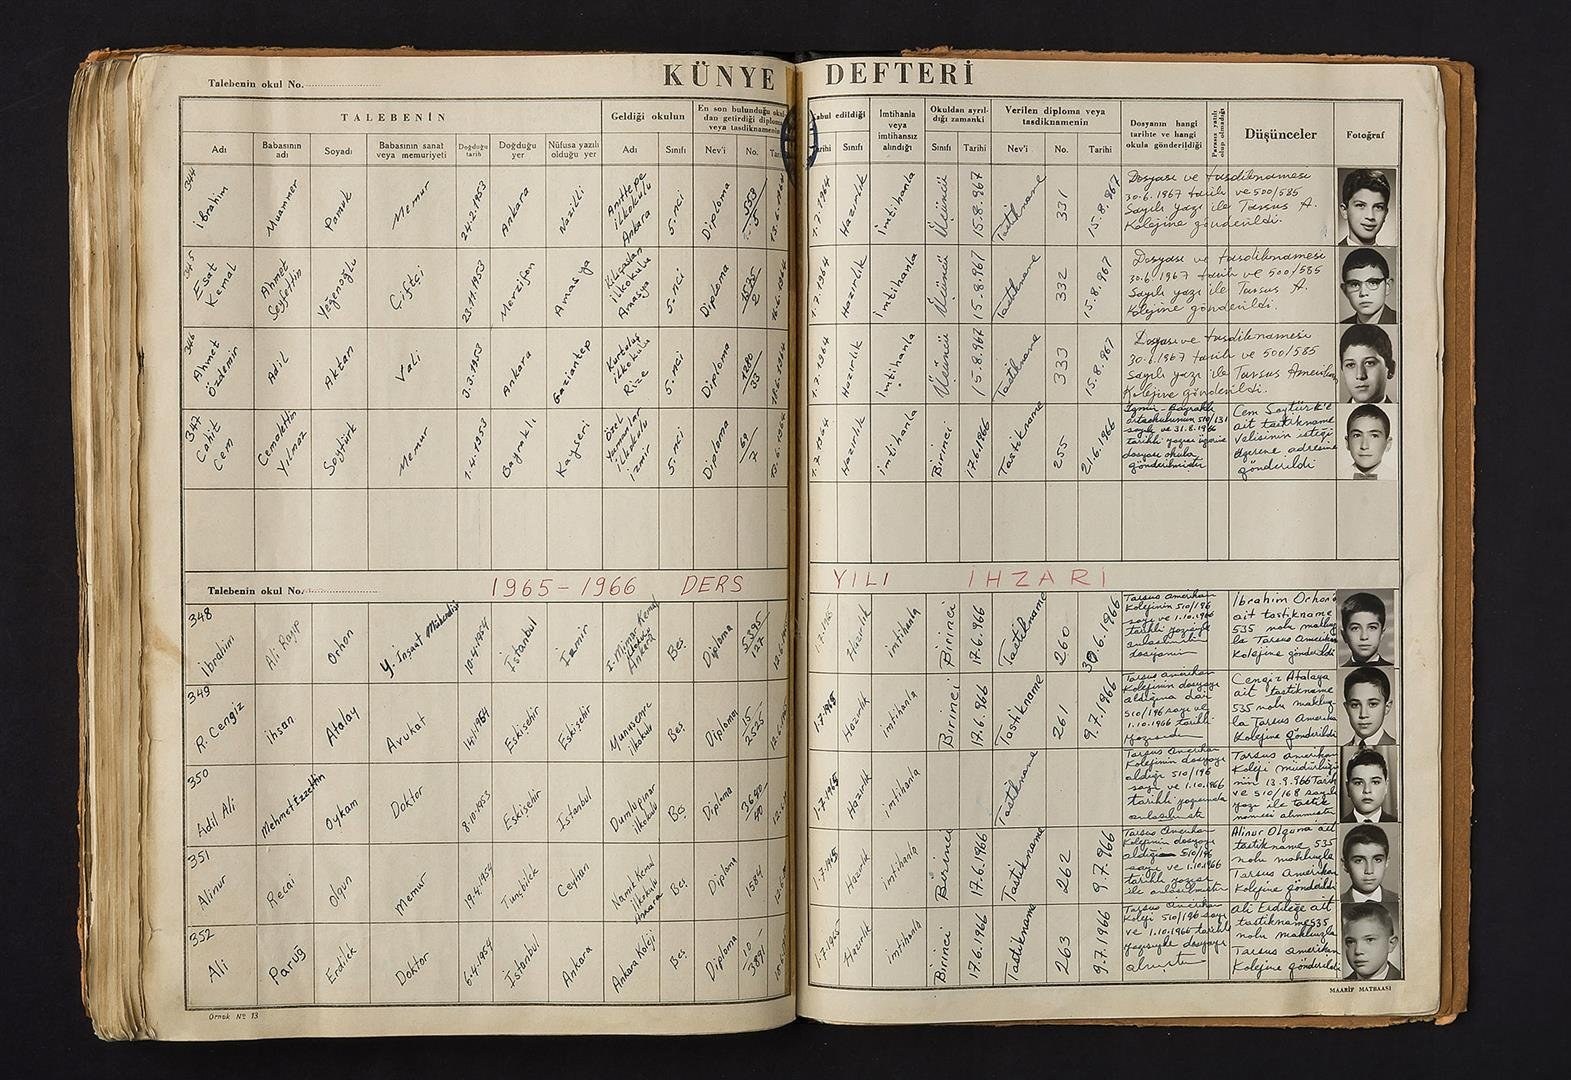 KÜNYE DEFTERİ
Talebenin okul No.
TALEBENİN
Geldiği okulun
En son bulunduğu okul
dan getirdiği diploma
veya tasdiknamenin
Kabul edildiği
İmtihanla
veya
imtihansız
alındığı
Okuldan ayrıl-
dığı zamanki
Verilen diploma veya
tasdiknamenin
Dosyanın hangi
tarihte ve hangi
okula gönderildiği
Parasız yatılı
olup olmadığı
Düşünceler
Fotoğraf
Adı
Babasının
adı
Soyadı
Babasının sanat
veya memuriyeti
Doğduğu
tarih
Doğduğu
yer
Nüfusa yazılı
olduğu yer
Adı
Sınıfı
Nev'i
No.
Tarihi
Sınıfı
Sınıfı
Tarihi
Nev'i
No.
Tarihi
344
İbrahim
Muammer
Pamuk
Memur
24.2.1953
Ankara
Nazilli
Anıttepe
İlkokulu
Ankara
5.nci
Diploma
1.7.1964
Hazırlık
İmtihanla
Üçüncü
15.8.967
Tastikname
331
15.8.967
Dosyası ve tasdiknamesi
30.6.1967 tarih ve 500/585
Sayılı yazı ile Tarsus A.
Kolejine gönderildi.
345
Esat
Kemal
Ahmet
Seyfettin
Yeğenoğlu
Çiftçi
23.11.1953
Merzifon
Amasya
Kılıçaslan
İlkokulu
Amasya
5.nci
Diploma
1.7.1964
Hazırlık
İmtihanla
Üçüncü
15.8.967
Tastikname
332
15.8.967
Dosyası ve tasdiknamesi
30.6.1967 tarih ve 500/585
Sayılı yazı ile Tarsus A.
Kolejine gönderildi.
346
Ahmet
Özdemir
Adil
Aktan
Vali
3.3.1953
Ankara
Gaziantep
Kurtuluş
İlkokulu
Rize
5.nci
Diploma
1280
33
1.7.1964
Hazırlık
İmtihanla
Üçüncü
15.8.967
Tastikname
333
15.8.967
Dosyası ve tasdiknamesi
30.6.1967 tarih ve 500/585
Sayılı yazı ile Tarsus Amerikan
Kolejine gönderildi.
347
Cahit
Cem
Cemalettin
Yılmaz
Soytürk
Memur
1.4.1953
Bayraklı
Kayseri
Özel
Yavrumlar
İlkokulu
İzmir
5.nci
Diploma
69
7
1.7.1964
Hazırlık
İmtihanla
Birinci
17.6.1966
Tastikname
255
21.6.1966
İzmir - Bayraklı
Ortaokulunun 510/131
sayılı ve 31.8.1966
tarihli yazısı üzerine
dosyası okula
gönderilmiştir
Cem Soytürk'e
ait tastikname
velisinin isteği
üzerine adresine
gönderildi
Talebenin okul No.
1965-1966 DERS YILI İHZARİ
348
İbrahim
Ali Ragıp
Orhon
Y. İnşaat Mühendisi
10.4.1954
İstanbul
İzmir
Beş
Diploma
5395
127
1.7.1965
Hazırlık
imtihanla
Birinci
17.6.966
Tastikname
260
30.6.1966
Tarsus Amerikan
Kolejinin 510/196
sayı ve 1.10.1966
tarihli yazısıyle
İbrahim Orhon'a
ait tastikname
535 nolu makbuz
la Tarsus Amerikan
Kolejine gönderildi
349
R. Cengiz
İhsan
Atalay
Avukat
14.1.1954
Eskişehir
Eskişehir
Yunusemre
ilkokulu
Beş
Diploma
15
2525
1.7.1965
Hazırlık
imtihanla
Birinci
17.6.966
Tastikname
261
9.7.1966
Tarsus Amerikan
Kolejinin dosyayı
aldığına dair
510/196 sayı ve
1.10.1966 tarihli
Cengiz Atalaya
ait tastikname
535 nolu makbuz
la Tarsus Amerikan
Kolejine gönderildi
350
Adil Ali
Mehmet İzzettin
Oykam
Doktor
8.10.1953
Eskişehir
İstanbul
Dumlupınar
ilkokulu
Beş
Diploma
1.7.1965
Hazırlık
imtihanla
Tastikname
Tarsus Amerikan
Kolejinin dosyayı
aldığı 510/196
sayı ve 1.10.1966
tarihli yazısından
anlaşılmıştır
Tarsus amerikan
Koleji müdürlüğü
nün 13.9.966 Tarih
ve 510/168 sayılı
yazı ile tastik
namesi alınmıştır
351
Alinur
Recai
Olgun
Memur
19.4.1954
Tunçbilek
Ceyhan
Namık Kemal
ilkokulu
Ankara
Beş
Diploma
1584
1.7.1965
Hazırlık
imtihanla
Birinci
17.6.1966
Tastikname
262
9.7.966
Tarsus Amerikan
Kolejinin dosyayı
aldığı 510/196
sayı ve 1.10.1966
tarihli yazısı
ile anlaşılmıştır
Alinur Olguna ait
tastikname 535
nolu makbuzla
Tarsus Amerikan
Kolejine gönderildi
352
Ali
Paruğ
Erdilek
Doktor
6.4.1954
İstanbul
Ankara
Ankara Koleji
Beş
Diploma
10
3891
1.7.1965
Hazırlık
imtihanla
Birinci
17.6.1966
Tastikname
263
9.7.1966
Tarsus Amerikan
Koleji 510/196 sayı
ve 1.10.1966 tarihli
yazısıyle dosyayı
almıştır
Ali Erdileğe ait
tastikname 535
nolu makbuzla
Tarsus amerikan
Kolejine gönderildi
Örnek No 13
MAARİF MATBAASI